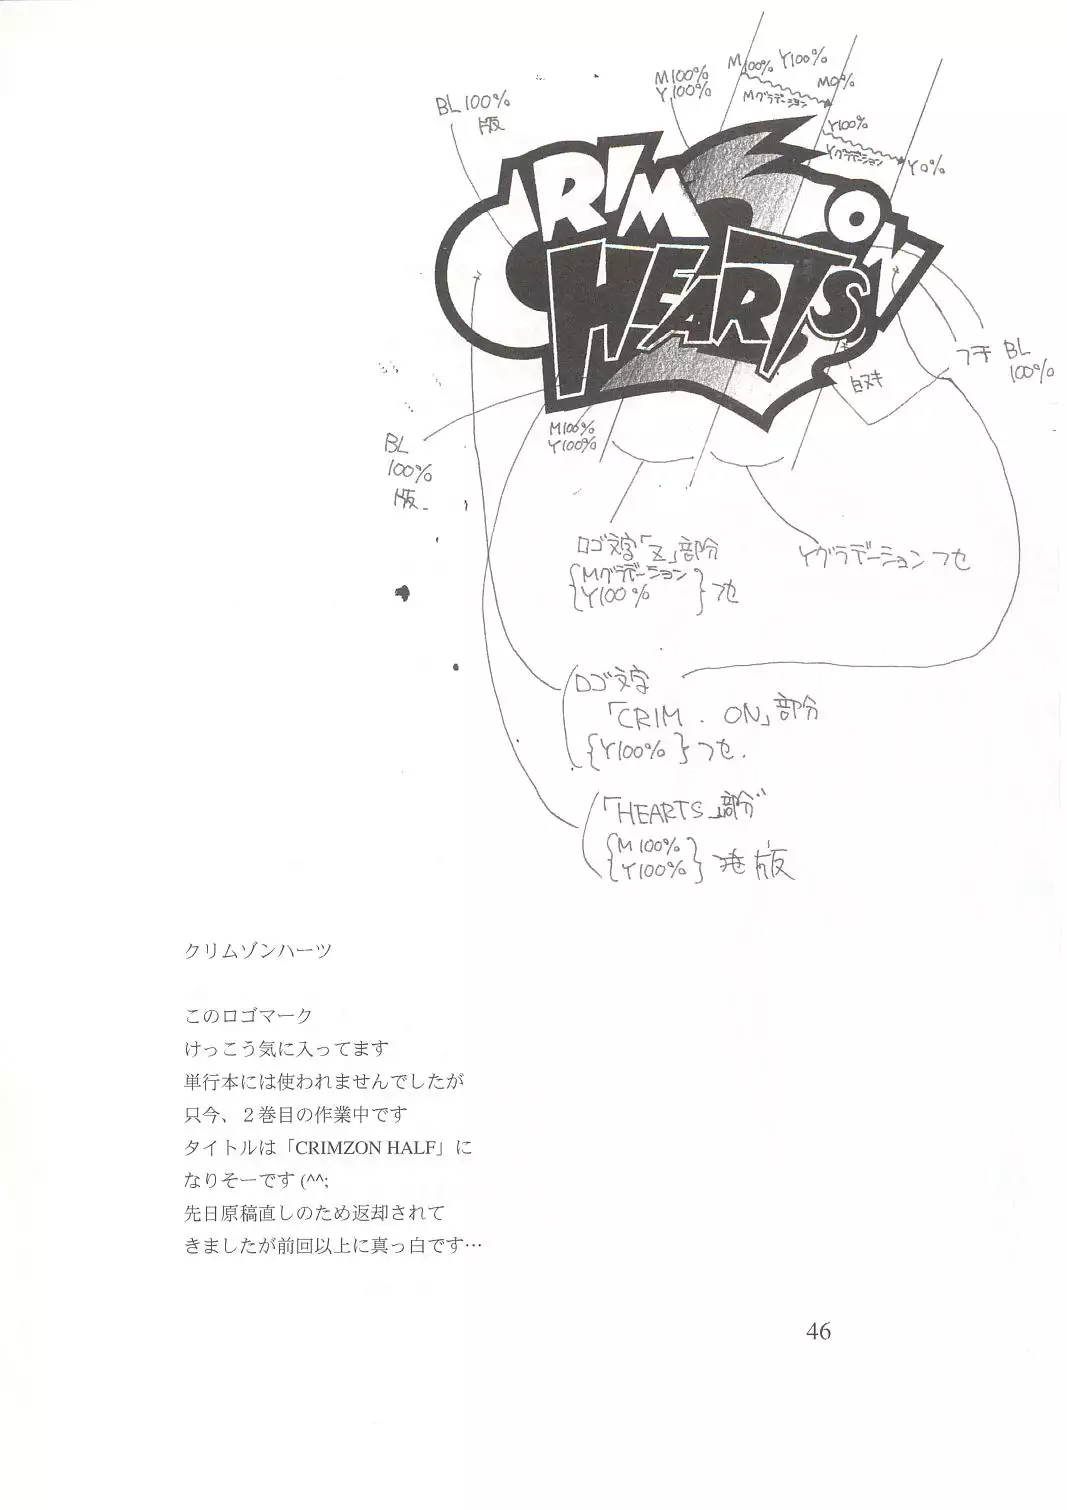 M100%
Y100%
M100% Y100%
M0%
Mグラデーション
Y100%
Y0%
Yグラデーション
BL100%
版
CRIMZON
HEARTS
フチ BL
100%
白ヌキ
M100%
Y100%
BL
100%
版
ロゴ文字「Z」部分
Mグラデーション
Y100%
フセ
Yグラデーション フセ
ロゴ文字
「CRIM . ON」部分
{Y100%}フセ.
「HEARTS」部分
M100%
Y100%
版
クリムゾンハーツ
このロゴマーク
けっこう気に入ってます
単行本には使われませんでしたが
只今、2巻目の作業中です
タイトルは「CRIMZON HALF」に
なりそーです(^^;
先日原稿直しのため返却されて
きましたが前回以上に真っ白です…
46